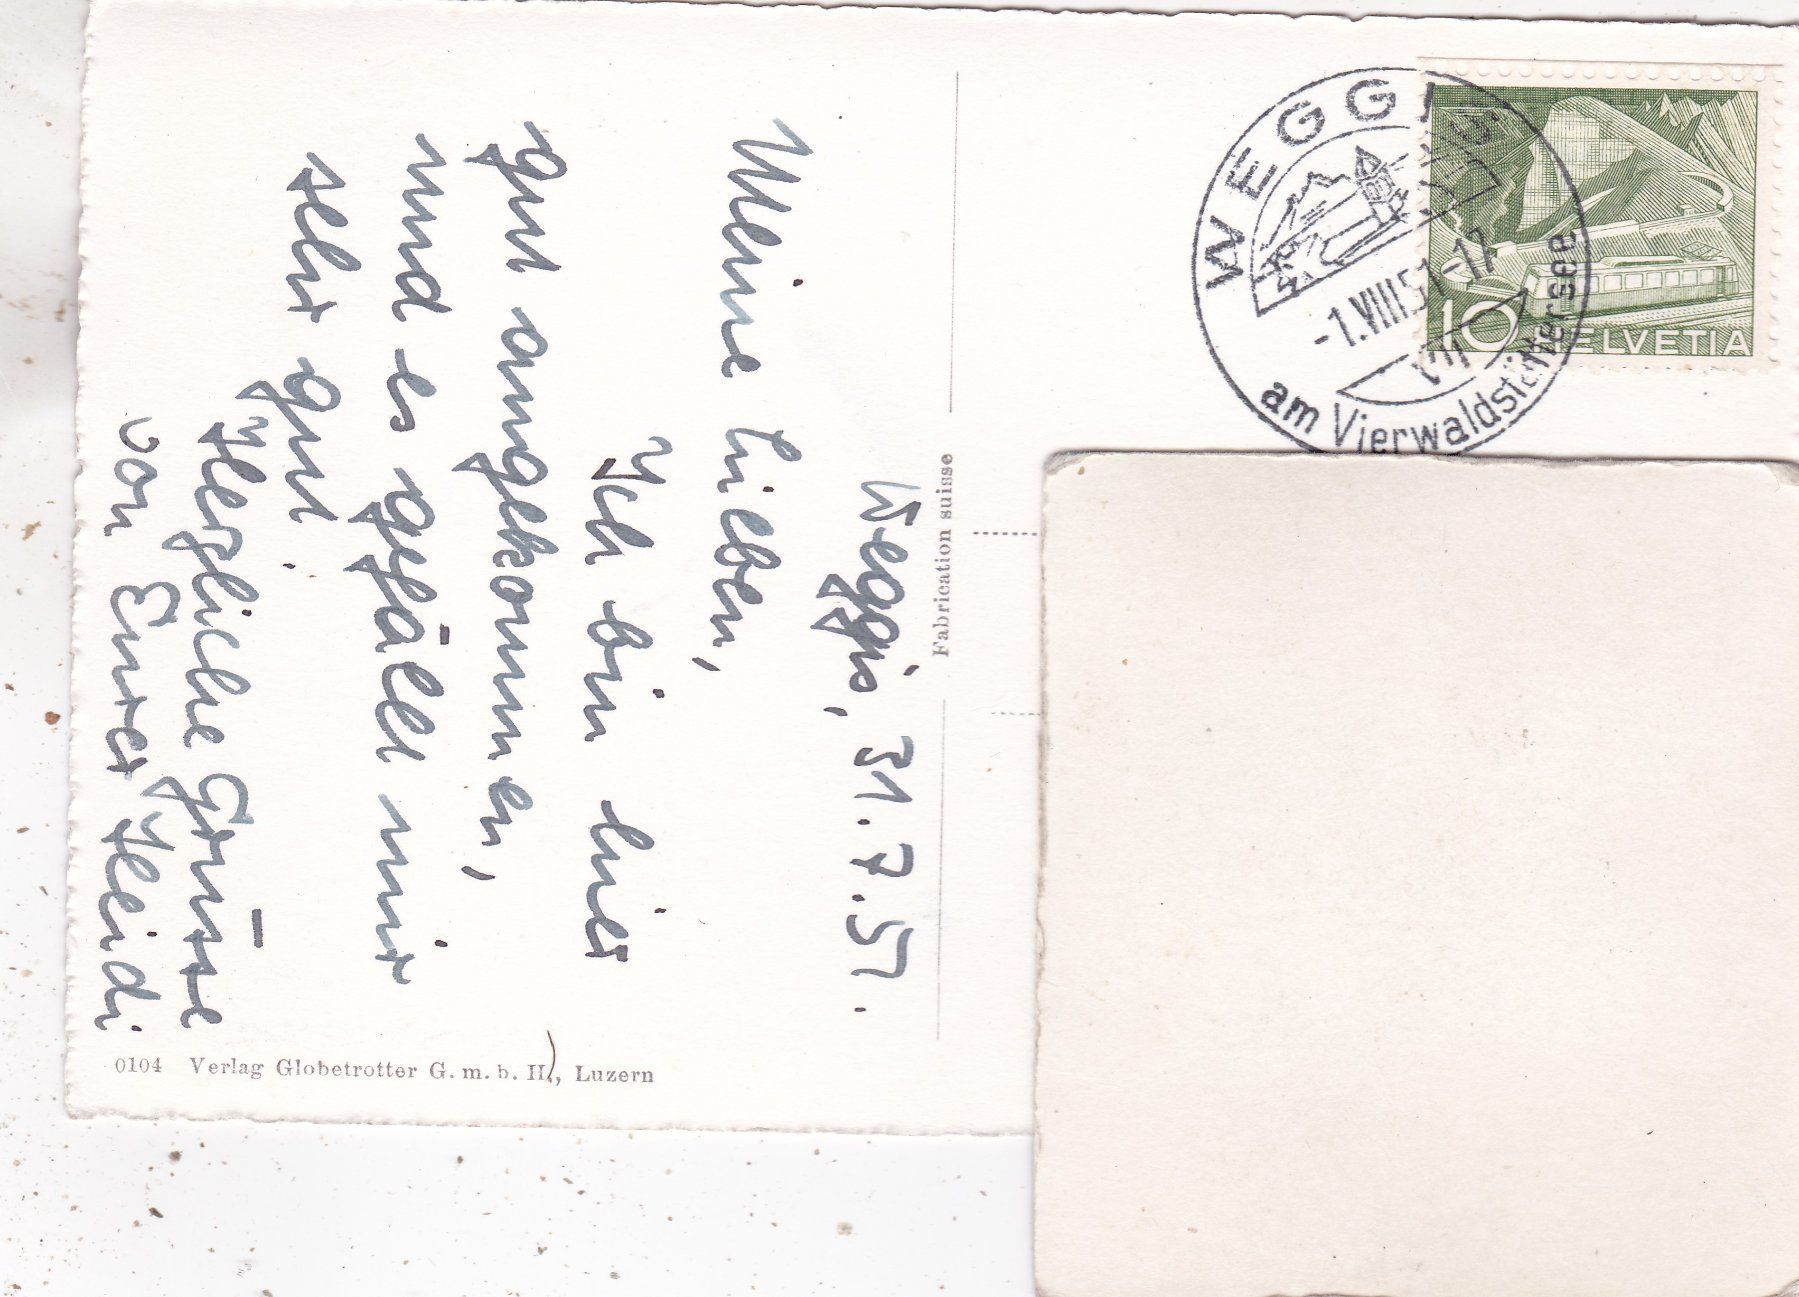 Weggis, 31.7.51.
Meine Lieben,
Ich bin hier
gut angekommen,
und es gefällt mir
sehr gut.
Herzliche Grüsse
von Eurer Heidi
Fabrication suisse
0104 Verlag Globetrotter G.m.b.H., Luzern
WEGGIS
-1.VIII.51-17
am Vierwaldstättersee
10 HELVETIA